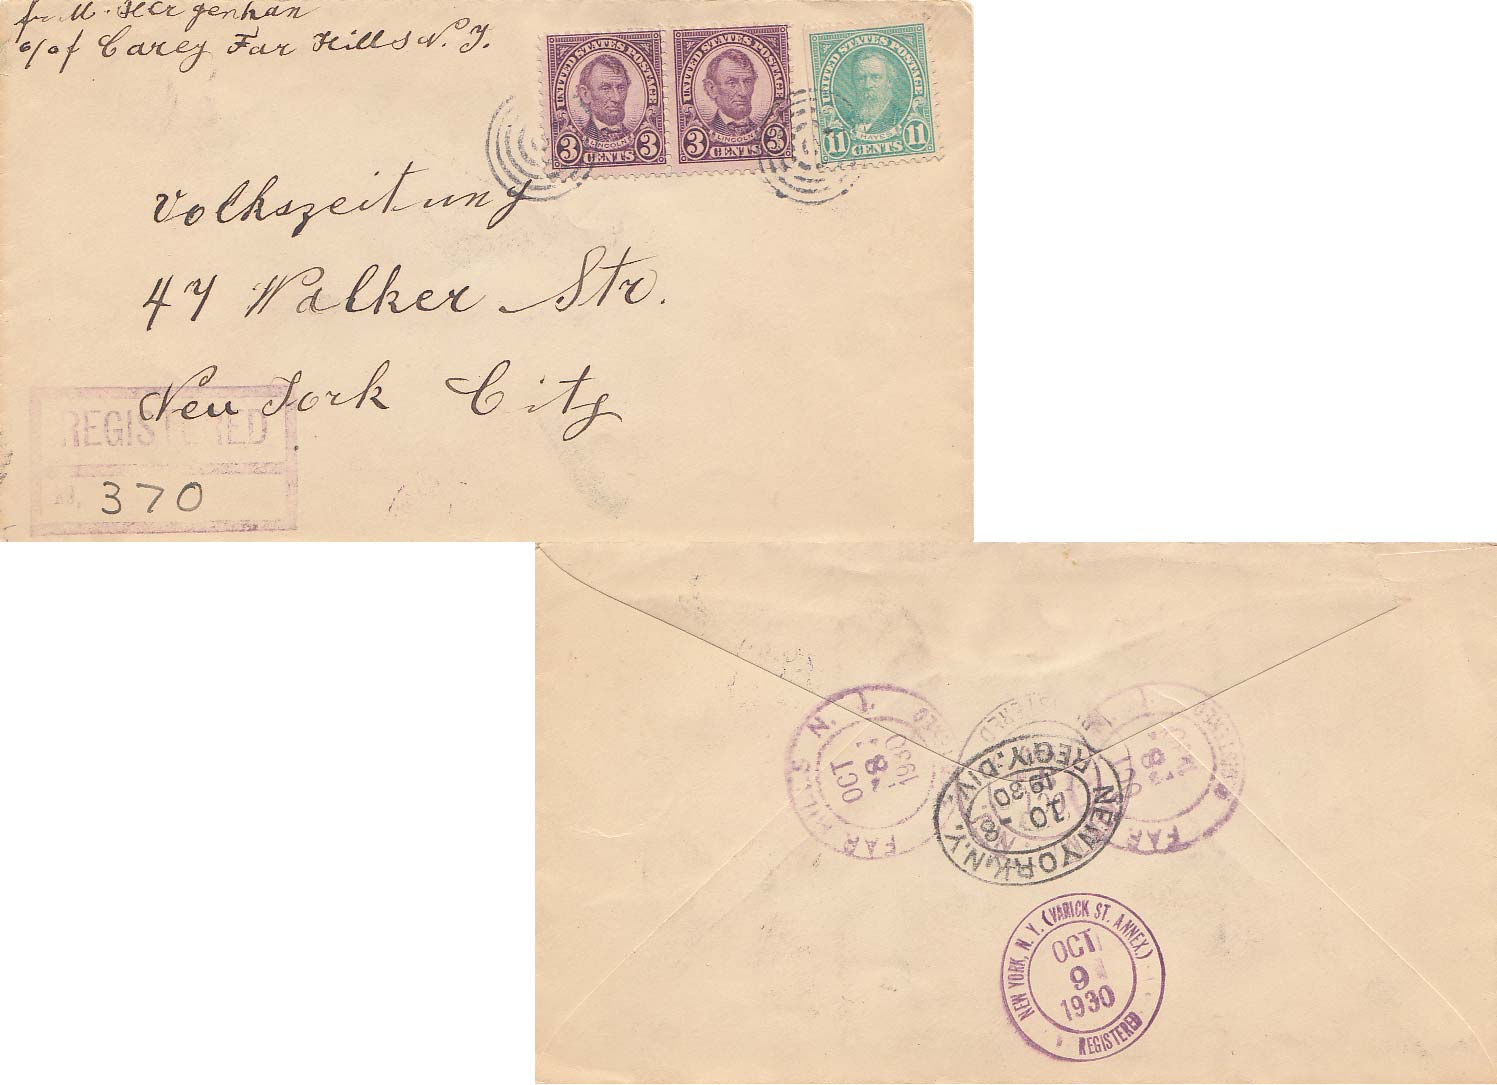 fr. M. Hergenhan
c/of Carey Far Hills N. J.
UNITED STATES POSTAGE
LINCOLN
3 CENTS 3
UNITED STATES POSTAGE
LINCOLN
3 CENTS 3
UNITED STATES POSTAGE
HAYES
11 CENTS 11
Volkszeitung
47 Walker Str.
New York City
REGISTERED
NO. 370
FAR HILLS N. J.
OCT
8
1930
REGISTERED
NEW YORK, N.Y.
REG'Y. DIV.
10
8
1930
FAR
OCT
8
NEW YORK, N. Y. (VARICK ST. ANNEX.)
OCT
9
1930
REGISTERED